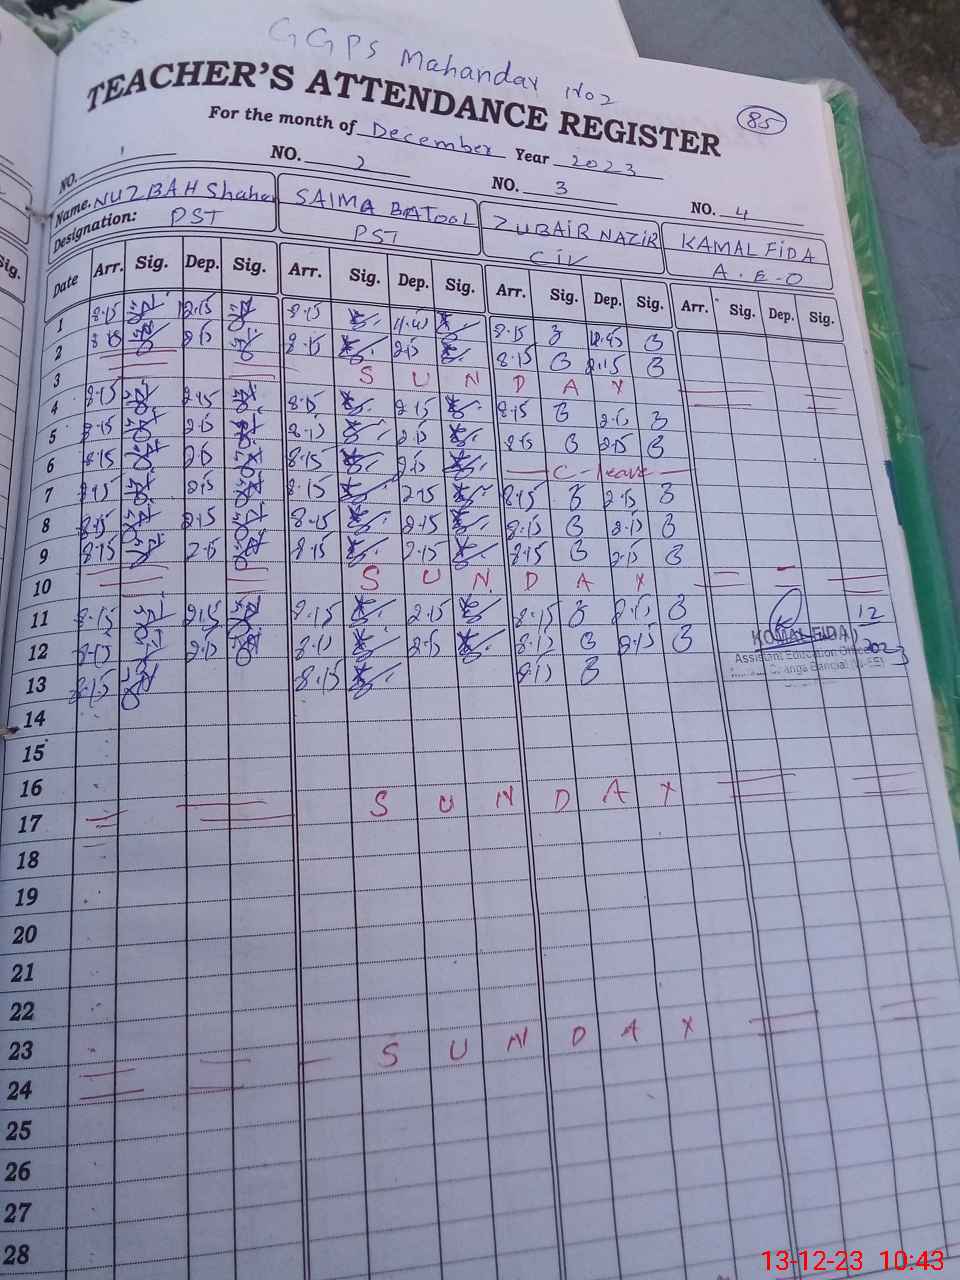 GGPS Mahandar No 2
TEACHER'S ATTENDANCE REGISTER
85
For the month of December Year 2023
NO. 1 NO. 2 NO. 3 NO. 4
Name. NUZBAH Shahe SAIMA BATOOL ZUBAIR NAZIR KAMAL FIDA
Designation: PST PST C IV A.E.O
Sig.
Date Arr. Sig. Dep. Sig. Arr. Sig. Dep. Sig. Arr. Sig. Dep. Sig. Arr. Sig. Dep. Sig.
1 8.15 12.15 8.15 8.15
2 8.15 2.15 8.15 2.15 8.15 2.15
3 S U N D A Y
4 8.15 2.15 8.15 2.15 8.15 2.15
5 8.15 2.15 8.15 2.15 8.15 2.15
6 8.15 2.15 8.15 2.15 C-leave
7 8.15 2.15 8.15 2.15 8.15 2.15
8 8.15 2.15 8.15 2.15 8.15 2.15
9 8.15 2.15 8.15 2.15 8.15 2.15
10 S U N D A Y
11 8.15 2.15 8.15 2.15 8.15 2.15
12 8.15 2.15 8.15 2.15 8.15 2.15
13 8.15 8.15 8.15
12
2023
KOMAL FIDA
Assistant Education Officer
14
15
16
17 S U N D A Y
18
19
20
21
22
23
24 S U N D A Y
25
26
27
28
13-12-23 10:43